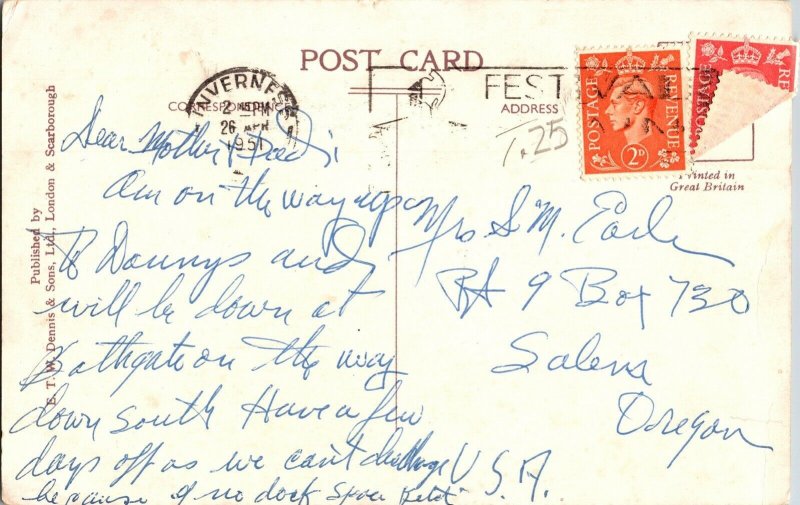 POST CARD
CORRESPONDENCE
ADDRESS
INVERNESS
2 PM
26 APR
1951
FESTIVAL
POSTAGE
REVENUE
2D
RE
Printed in
Great Britain
Published by
E. T. W. Dennis & Sons, Ltd., London & Scarborough
T.25
Dear Mother
Am on the way up
To Dannys and
will be down at
Bathgate on the way
down south Have a few
days off as we can't
because of no dock
Mrs S. M. Earle
Rt 9 Box 730
Salem
Oregon
U.S.A.